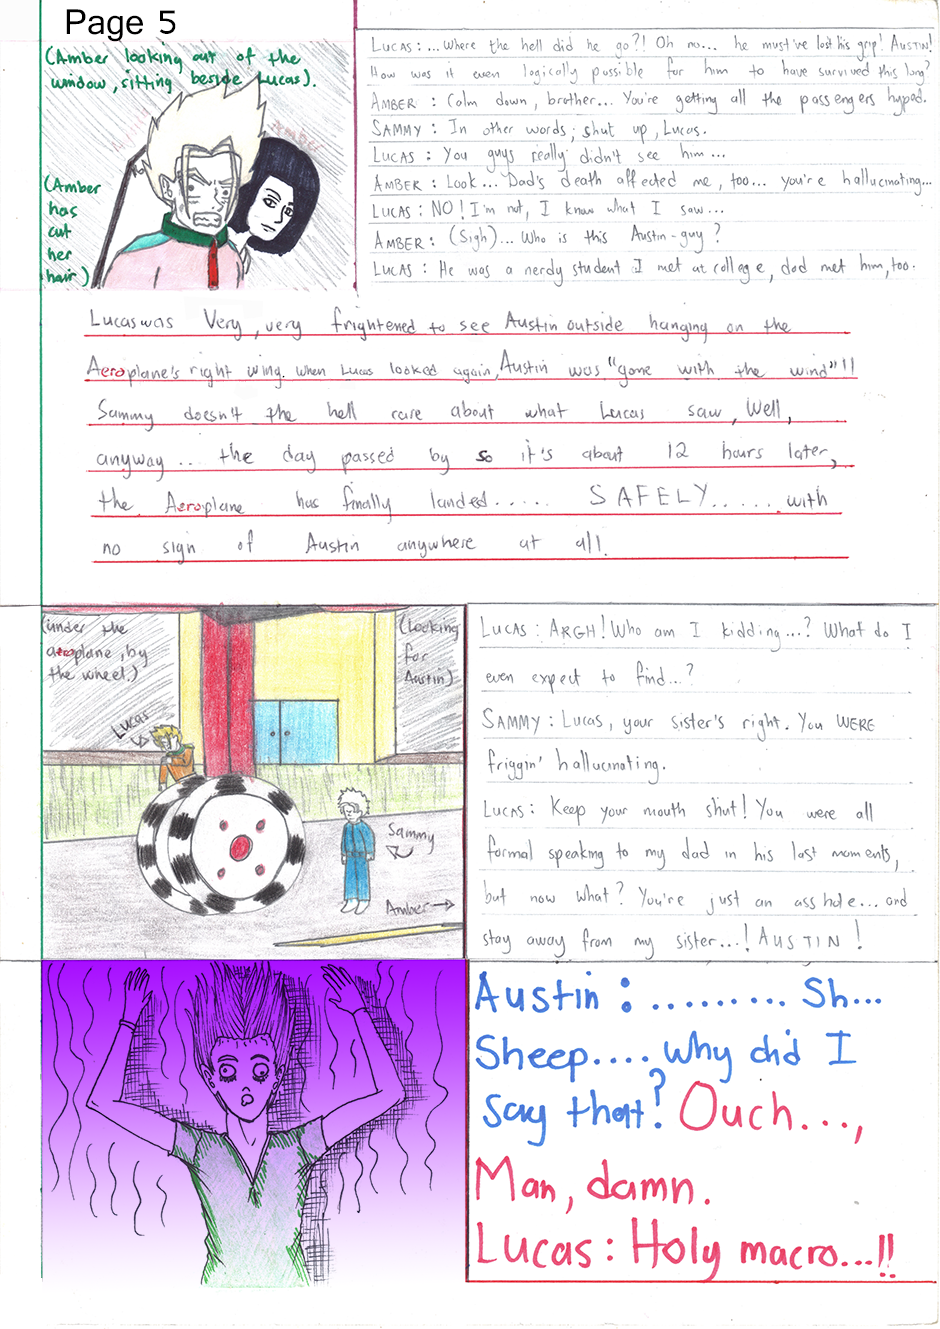 Page 5
(Amber looking out of the
window, sitting beside Lucas).
Amber
(Amber
has
cut
her
hair)
LUCAS: ...Where the hell did he go?! Oh no... he must've lost his grip! AUSTIN!
How was it even logically possible for him to have survived this long?
AMBER: Calm down, brother... You're getting all the passengers hyped.
SAMMY: In other words; shut up, Lucas.
LUCAS: You guys really didn't see him...
AMBER: Look... Dad's death affected me, too... you're hallucinating...
LUCAS: NO! I'm not, I know what I saw...
AMBER: (Sigh)... Who is this Austin-guy?
LUCAS: He was a nerdy student I met at college, dad met him, too.
Lucas was Very, very frightened to see Austin outside hanging on the
Aeroplane's right wing. When Lucas looked again, Austin was "gone with the wind"!!
Sammy doesn't the hell care about what Lucas saw, Well,
anyway... the day passed by so it's about 12 hours later,
the Aeroplane has finally landed.... SAFELY...... with
no sign of Austin anywhere at all.
(under the
aeroplane, by
the wheel.)
(Looking
for
Austin)
Lucas
Sammy
Amber
LUCAS: ARGH! Who am I kidding...? What do I
even expect to find...?
SAMMY: Lucas, your sister's right. You WERE
friggin' hallucinating.
LUCAS: Keep your mouth shut! You were all
formal speaking to my dad in his last moments,
but now what? You're just an asshole... and
stay away from my sister...! AUSTIN!
Austin: ......... Sh...
Sheep.... why did I
say that? Ouch...,
Man, damn.
Lucas: Holy macro...!!